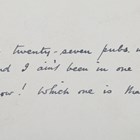 twenty-seven pubs
nd I ain't been in one
ow! Which one is tha